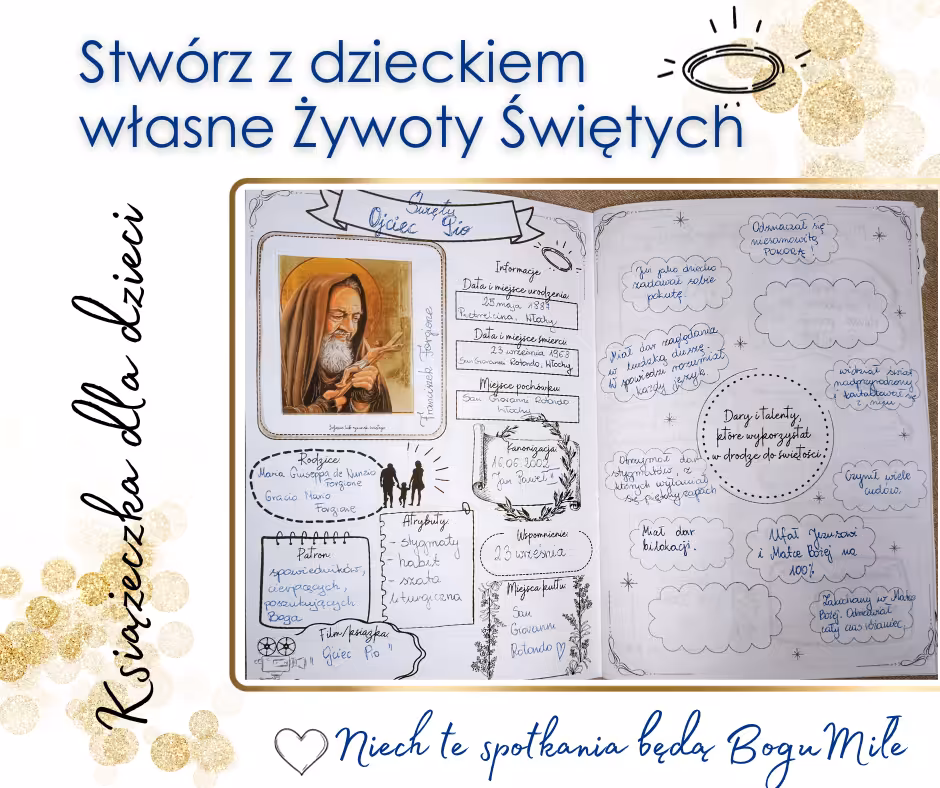 Stwórz z dzieckiem
własne Żywoty Świętych
Książeczka dla dzieci
Święty
Ojciec Pio
Franciszek Forgione
Informacje
Data i miejsce urodzenia:
25 maja 1887
Pietrelcina, Włochy
Data i miejsce śmierci:
23 września 1968
San Giovanni Rotondo, Włochy
Miejsce pochówku:
San Giovanni Rotondo
Włochy
Kanonizacja:
16.06.2002
Jan Paweł II
Rodzice:
Maria Giuseppa de Nunzio
Forgione
Grazio Mario
Forgione
Atrybuty:
- stygmaty
- habit
- szata
liturgiczna
Wspomnienie:
23 września
Patron:
spowiedników,
cierpiących,
poszukujących
Boga
Miejsca kultu:
San
Giovanni
Rotondo
Film/książka:
"Ojciec Pio"
Odznaczał się
niesamowitą
POKORĄ!
Już jako dziecko
zadawał sobie
pokutę.
Miał dar zaglądania
w ludzką duszę.
W spowiedzi rozumiał
każdy język.
widział świat
nadprzyrodzony
i kontaktował się
z nim.
Dary i talenty,
które wykorzystał
w drodze do świętości.
Otrzymał dar
stygmatów, z
których wydawał
się piękny zapach
Czynił wiele
cudów.
Miał dar
bilokacji.
Ufał Jezusowi
i Matce Bożej na
100%
Zakochany w Matce
Bożej. Odmawiał
cały czas różaniec.
Niech te spotkania będą BoguMiłe